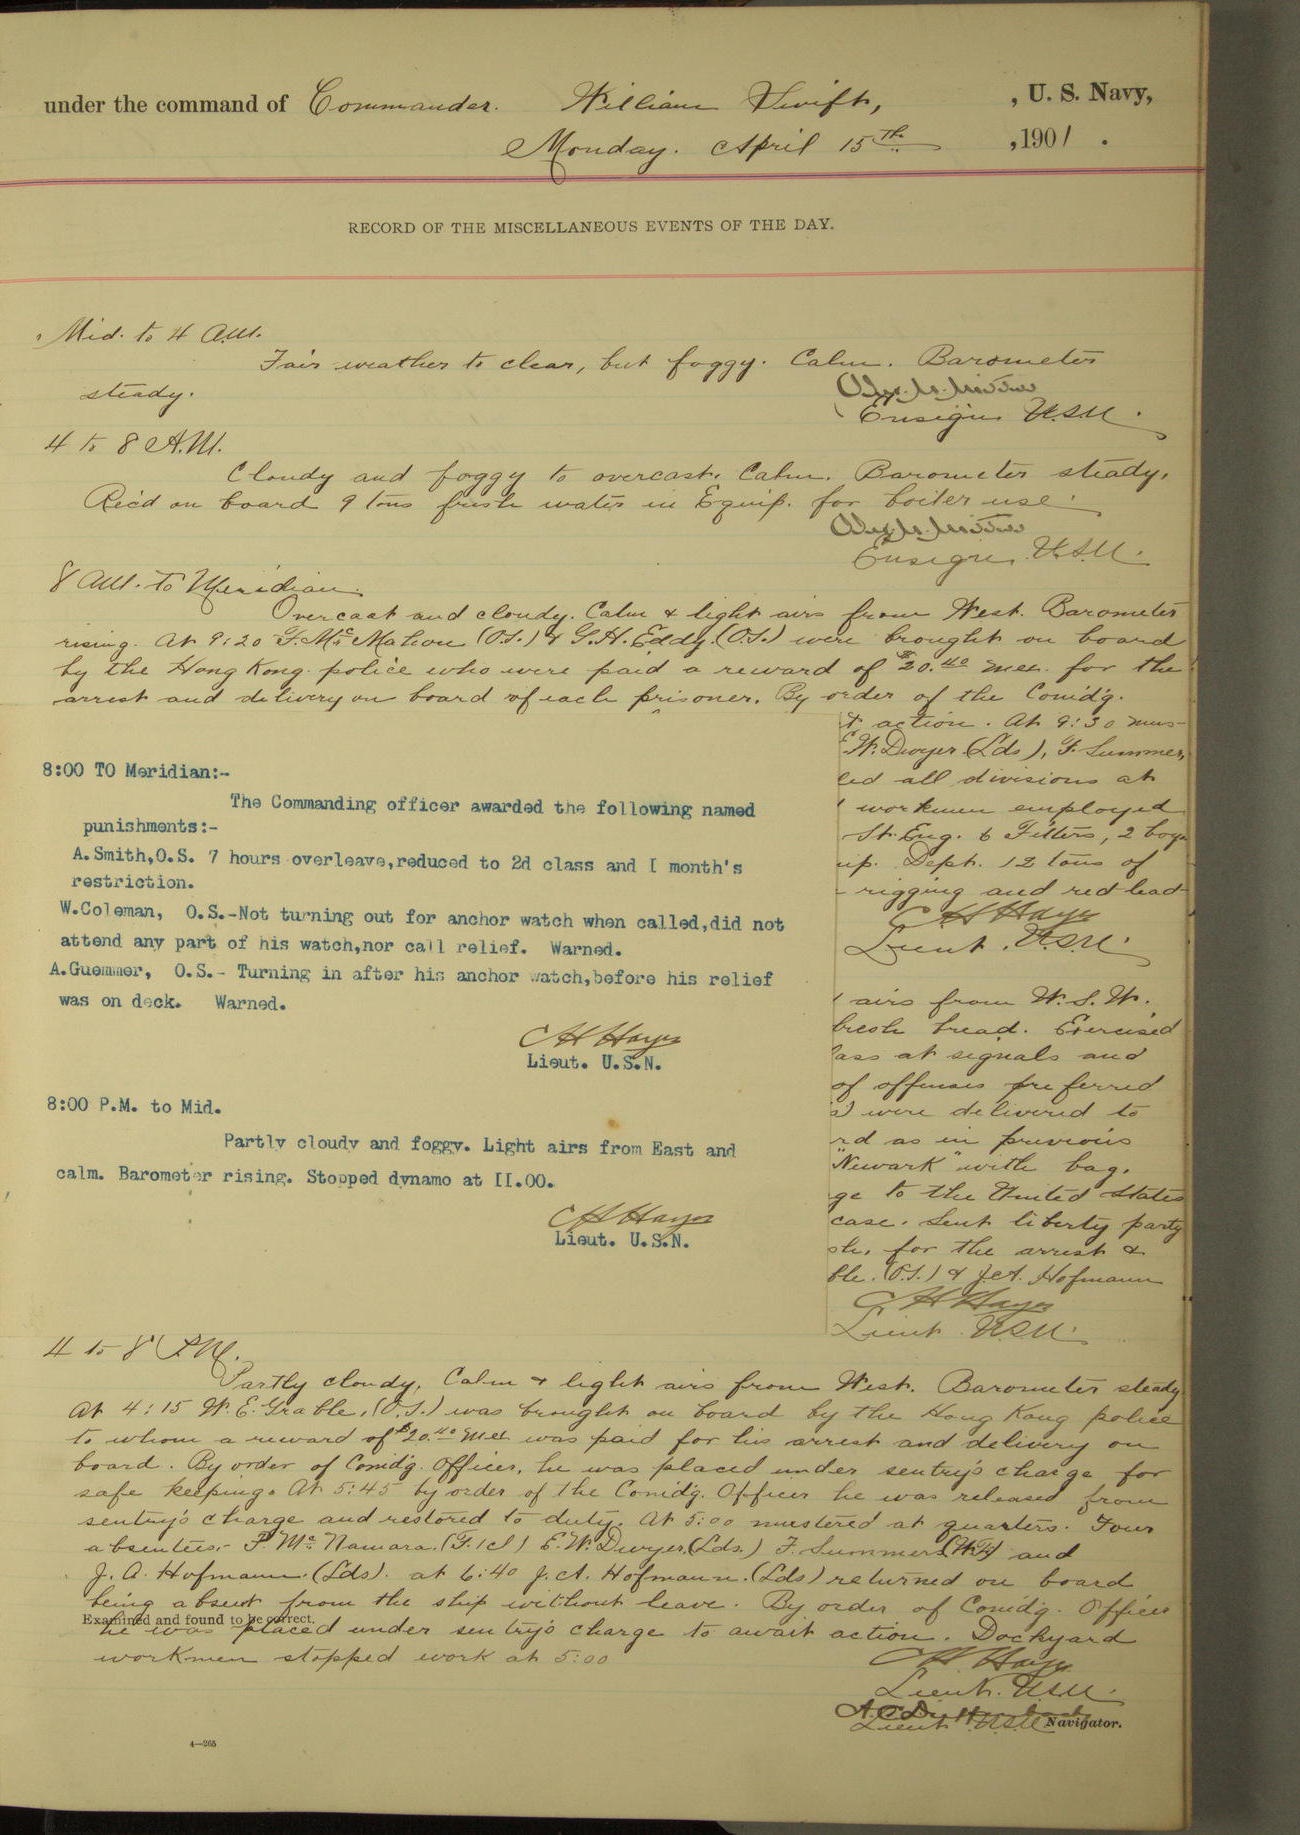 under the command of Commander. William Swift, , U. S. Navy,
Monday. April 15th , 1901 .
RECORD OF THE MISCELLANEOUS EVENTS OF THE DAY.
Mid. to 4 A.M.
Fair weather to clear, but foggy. Calm. Barometer
steady.
Ensign U.S.N.
4 to 8 A.M.
Cloudy and foggy to overcast. Calm. Barometer steady.
Rec'd on board 9 tons fresh water in Equip. for boiler use.
Ensign U.S.N.
8 A.M. to Meridian.
Overcast and cloudy. Calm & light airs from West. Barometer
rising. At 9:20 F. McMahon (O.S.) & G.H. Eddy. (O.S.) were brought on board
by the Hong Kong police who were paid a reward of $20.40 Mex. for the
arrest and delivery on board of each prisoner. By order of the Comd'g.
t action. At 9:30 mus-
E.W. Dwyer (Lds), F. Summer,
led all divisions at
workmen employed
St. Eng. 6 Fitters, 2 boys
uip. Dept. 12 tons of
rigging and red lead
C H Hayes
Lieut. U.S.N.
8:00 TO Meridian:-
The Commanding officer awarded the following named
punishments:-
A.Smith,O.S. 7 hours overleave,reduced to 2d class and I month's
restriction.
W.Coleman, O.S.-Not turning out for anchor watch when called,did not
attend any part of his watch,nor call relief. Warned.
A.Guemmer, O.S.- Turning in after his anchor watch,before his relief
was on deck. Warned.
C H Hayes
Lieut. U.S.N.
8:00 P.M. to Mid.
Partly cloudy and foggy. Light airs from East and
calm. Barometer rising. Stopped dynamo at II.00.
C H Hayes
Lieut. U.S.N.
airs from W.S.W.
fresh bread. Exercised
lass at signals and
of offenses preferred
were delivered to
rd as in previous
"Newark" with bag.
ge to the United States
case. Sent liberty party
for the arrest &
ble. (O.S.) & J.A. Hofmann
C H Hayes
Lieut. U.S.N.
4 to 8 P.M.
Partly cloudy, Calm & light airs from West. Barometer steady
At 4:15 W.E. Grable, (O.S.) was brought on board by the Hong Kong police
to whom a reward of $20.40 Mex was paid for his arrest and delivery on
board. By order of Comd'g. Officer, he was placed under sentry's charge for
safe keeping. At 5:45 by order of the Comd'g. Officer he was released from
sentry's charge and restored to duty. At 5:00 mustered at quarters. Four
absentees:- P. McNamara. (F.1cl) E.W. Dwyer. (Lds.) F. Summers (W.T.) and
J. A. Hofmann. (Lds). at 6:40 J.A. Hofmann. (Lds) returned on board
being absent from the ship without leave. By order of Comd'g. Officer
Examined and found to be correct.
he was placed under sentry's charge to await action. Dockyard
workmen stopped work at 5:00
C H Hayes
Lieut. U.S.N.
Lieut U.S.N. Navigator.
4—265